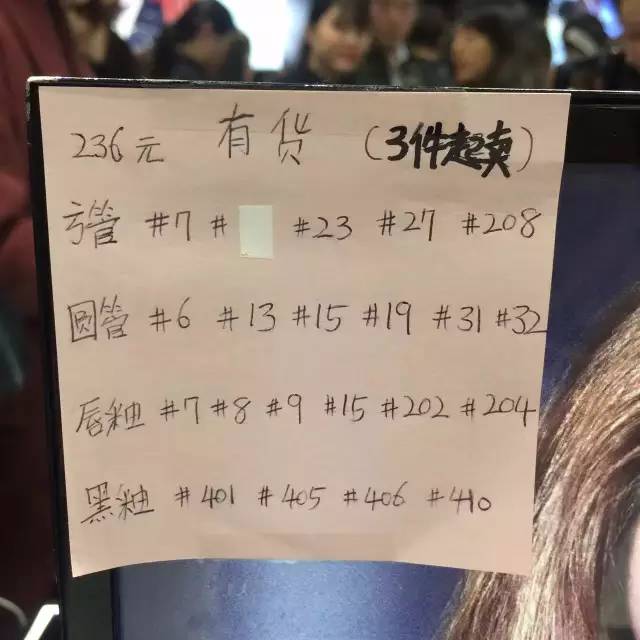 236元 有货 (3件起卖)
方管 #7 # #23 #27 #208
圆管 #6 #13 #15 #19 #31 #32
唇釉 #7 #8 #9 #15 #202 #204
黑釉 #401 #405 #406 #410